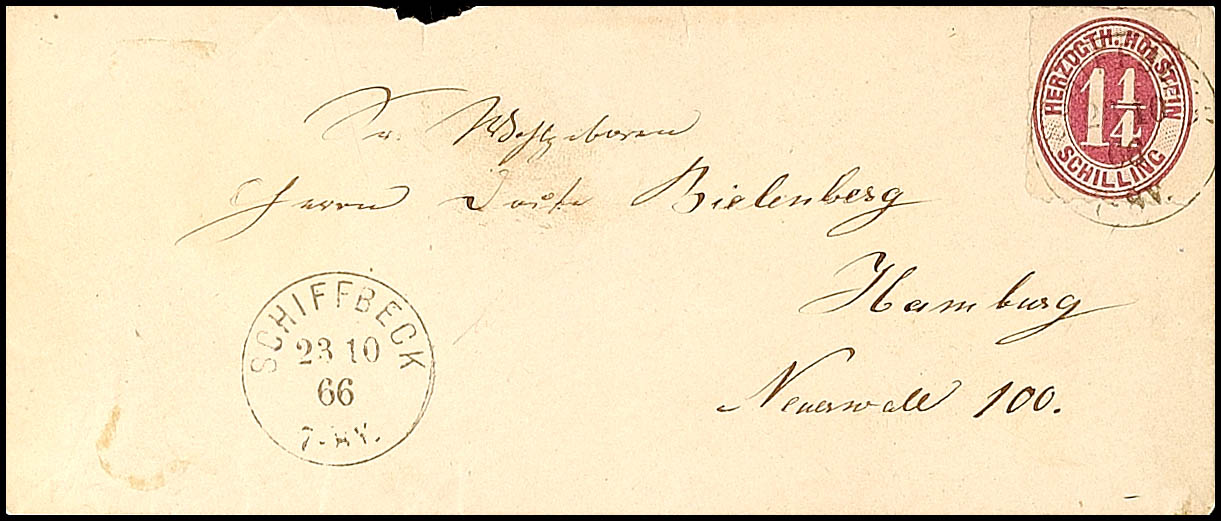 HERZOGTH. HOLSTEIN
1 1/4
SCHILLING
Sr. Wohlgeboren
Herrn Bielenberg
Hamburg
Neuerwall 100.
SCHIFFBECK
23 10
66
7-